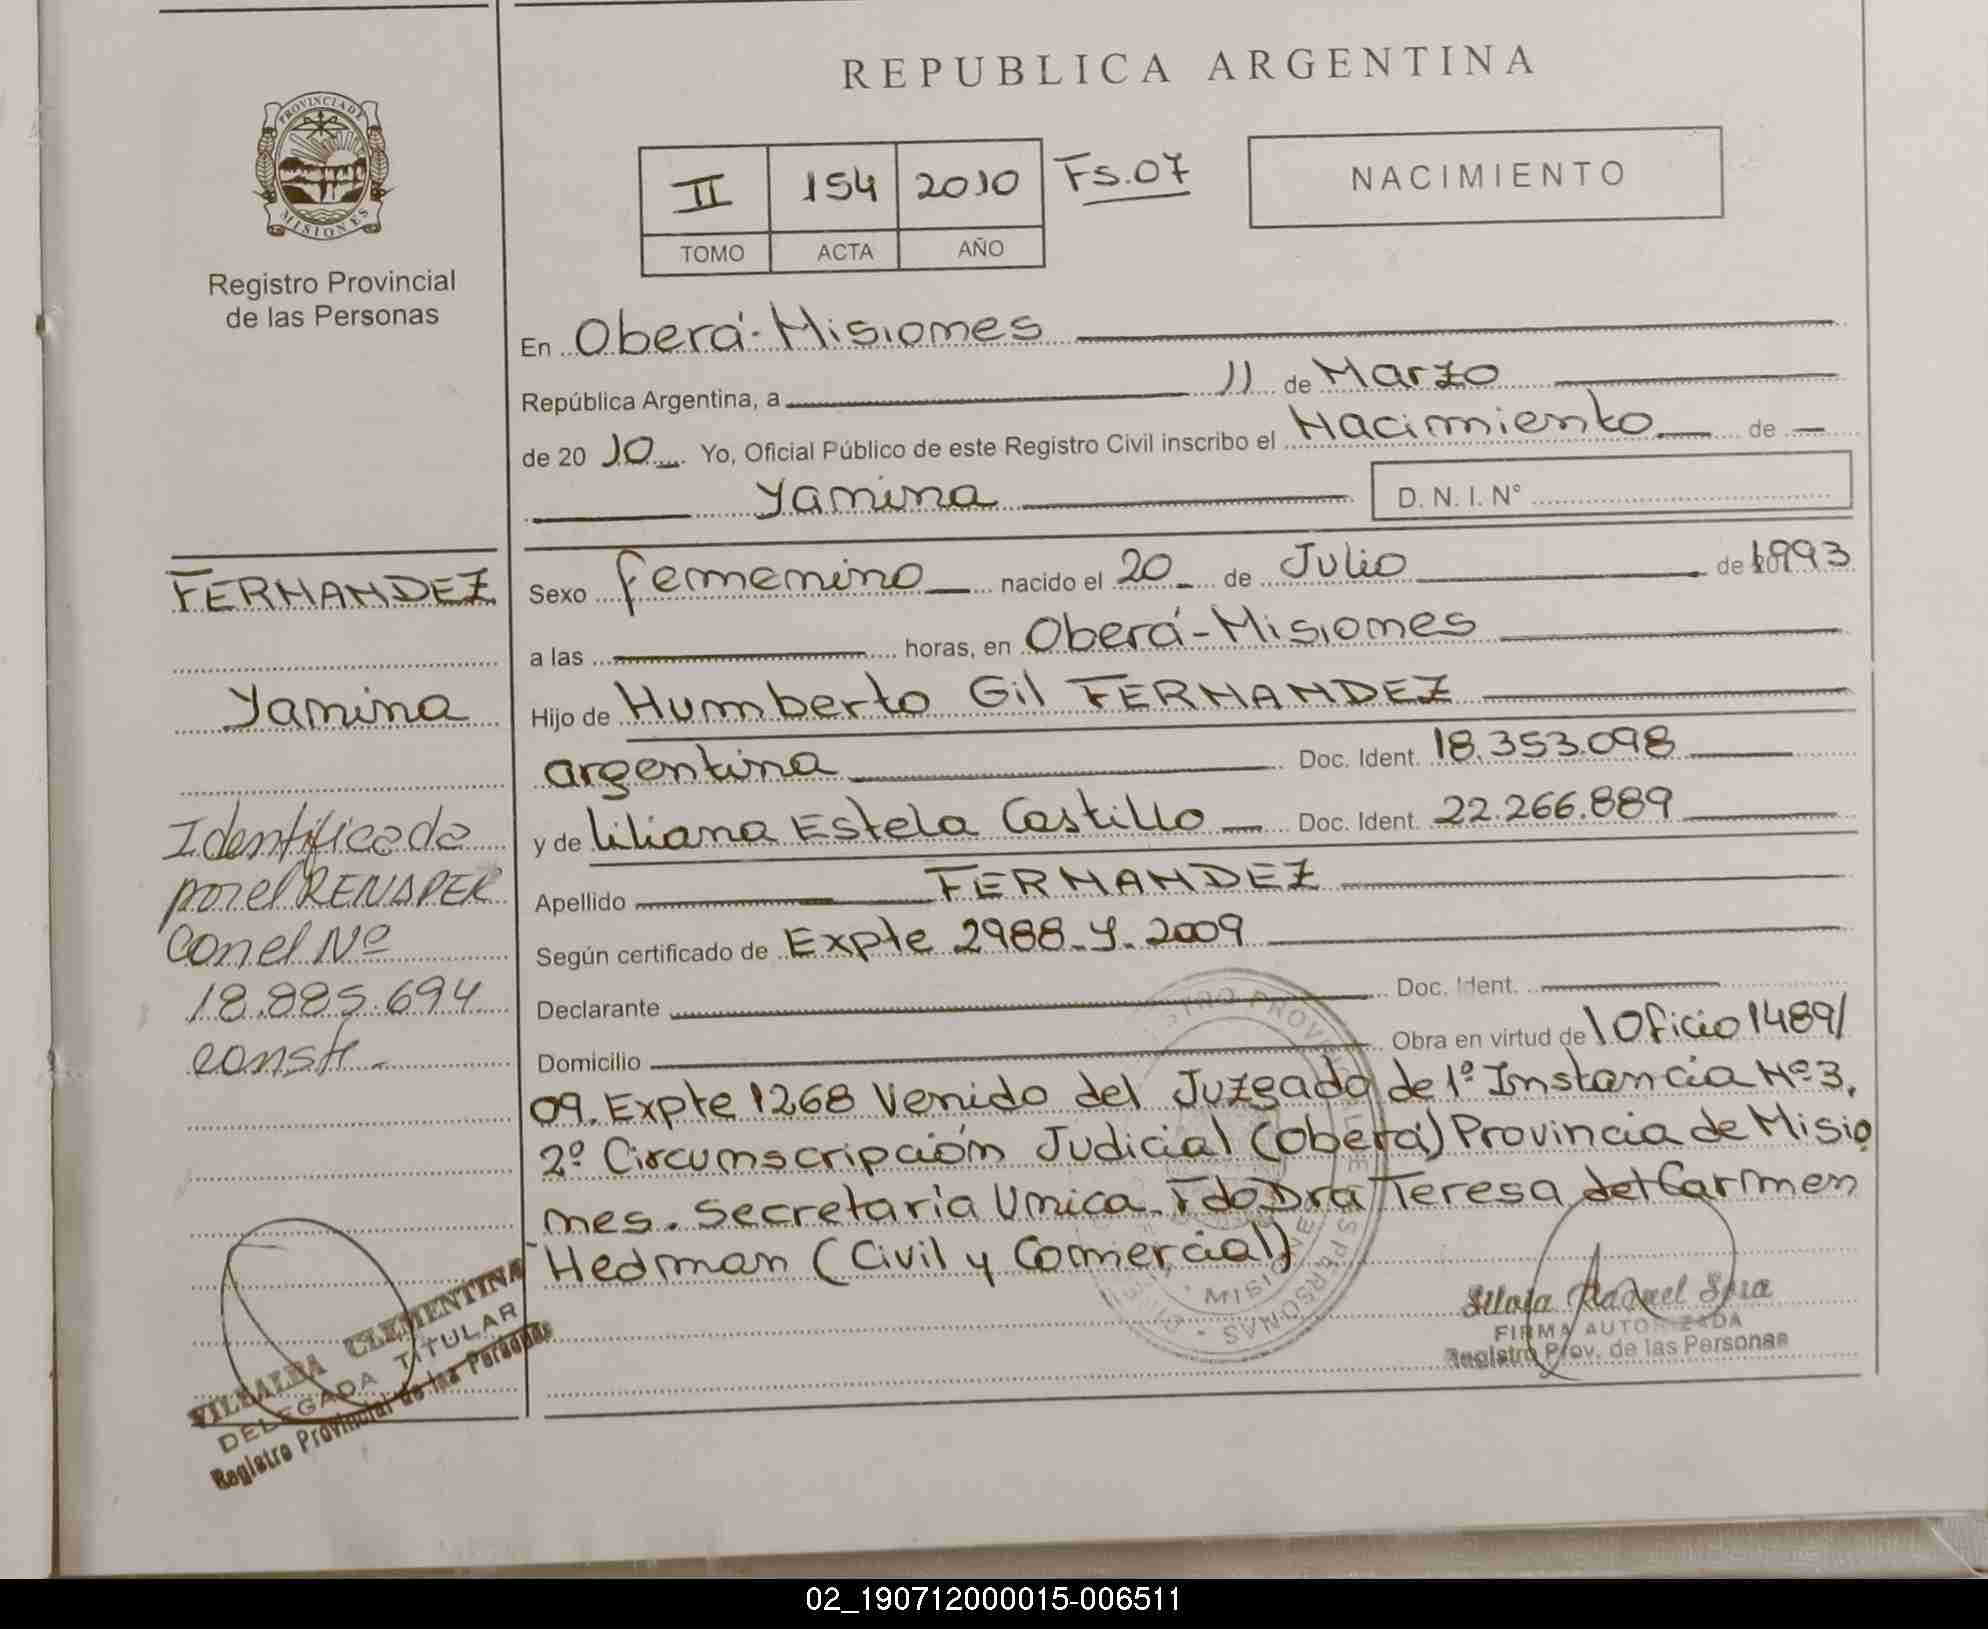 REPUBLICA ARGENTINA
PROVINCIA DE
MISIONES
Registro Provincial
de las Personas
II 154 2010 Fs.07
TOMO ACTA AÑO
NACIMIENTO
En Oberá-Misiones
República Argentina, a 11 de Marzo
de 20 10 Yo, Oficial Público de este Registro Civil inscribo el Nacimiento de
Yanina D. N. I. N°
FERNANDEZ
Yanina
Identificada
por el RENAPER
Con el Nº
18.885.694
const.-
Sexo femenino nacido el 20 de Julio de 1993
a las horas, en Oberá-Misiones
Hijo de Humberto Gil FERNANDEZ
argentina Doc. Ident. 18.353.098
y de Liliana Estela Castillo Doc. Ident. 22.266.889
Apellido FERNANDEZ
Según certificado de Expte 2988-Y-2009
Declarante Doc. Ident.
Domicilio Obra en virtud de Oficio 1489/
09. Expte 1268 Venido del Juzgado de 1º Instancia Nº3,
2º Circunscripción Judicial (Oberá) Provincia de Misio
nes. Secretaría Unica. Fdo Dra Teresa del Carmen
Hedman (Civil y Comercial)
VILLALBA CLEMENTINA
DELEGADA TITULAR
Registro Provincial de las Personas
Silvia Raquel
FIRMA AUTORIZADA
Registro Prov. de las Personas
02_190712000015-006511